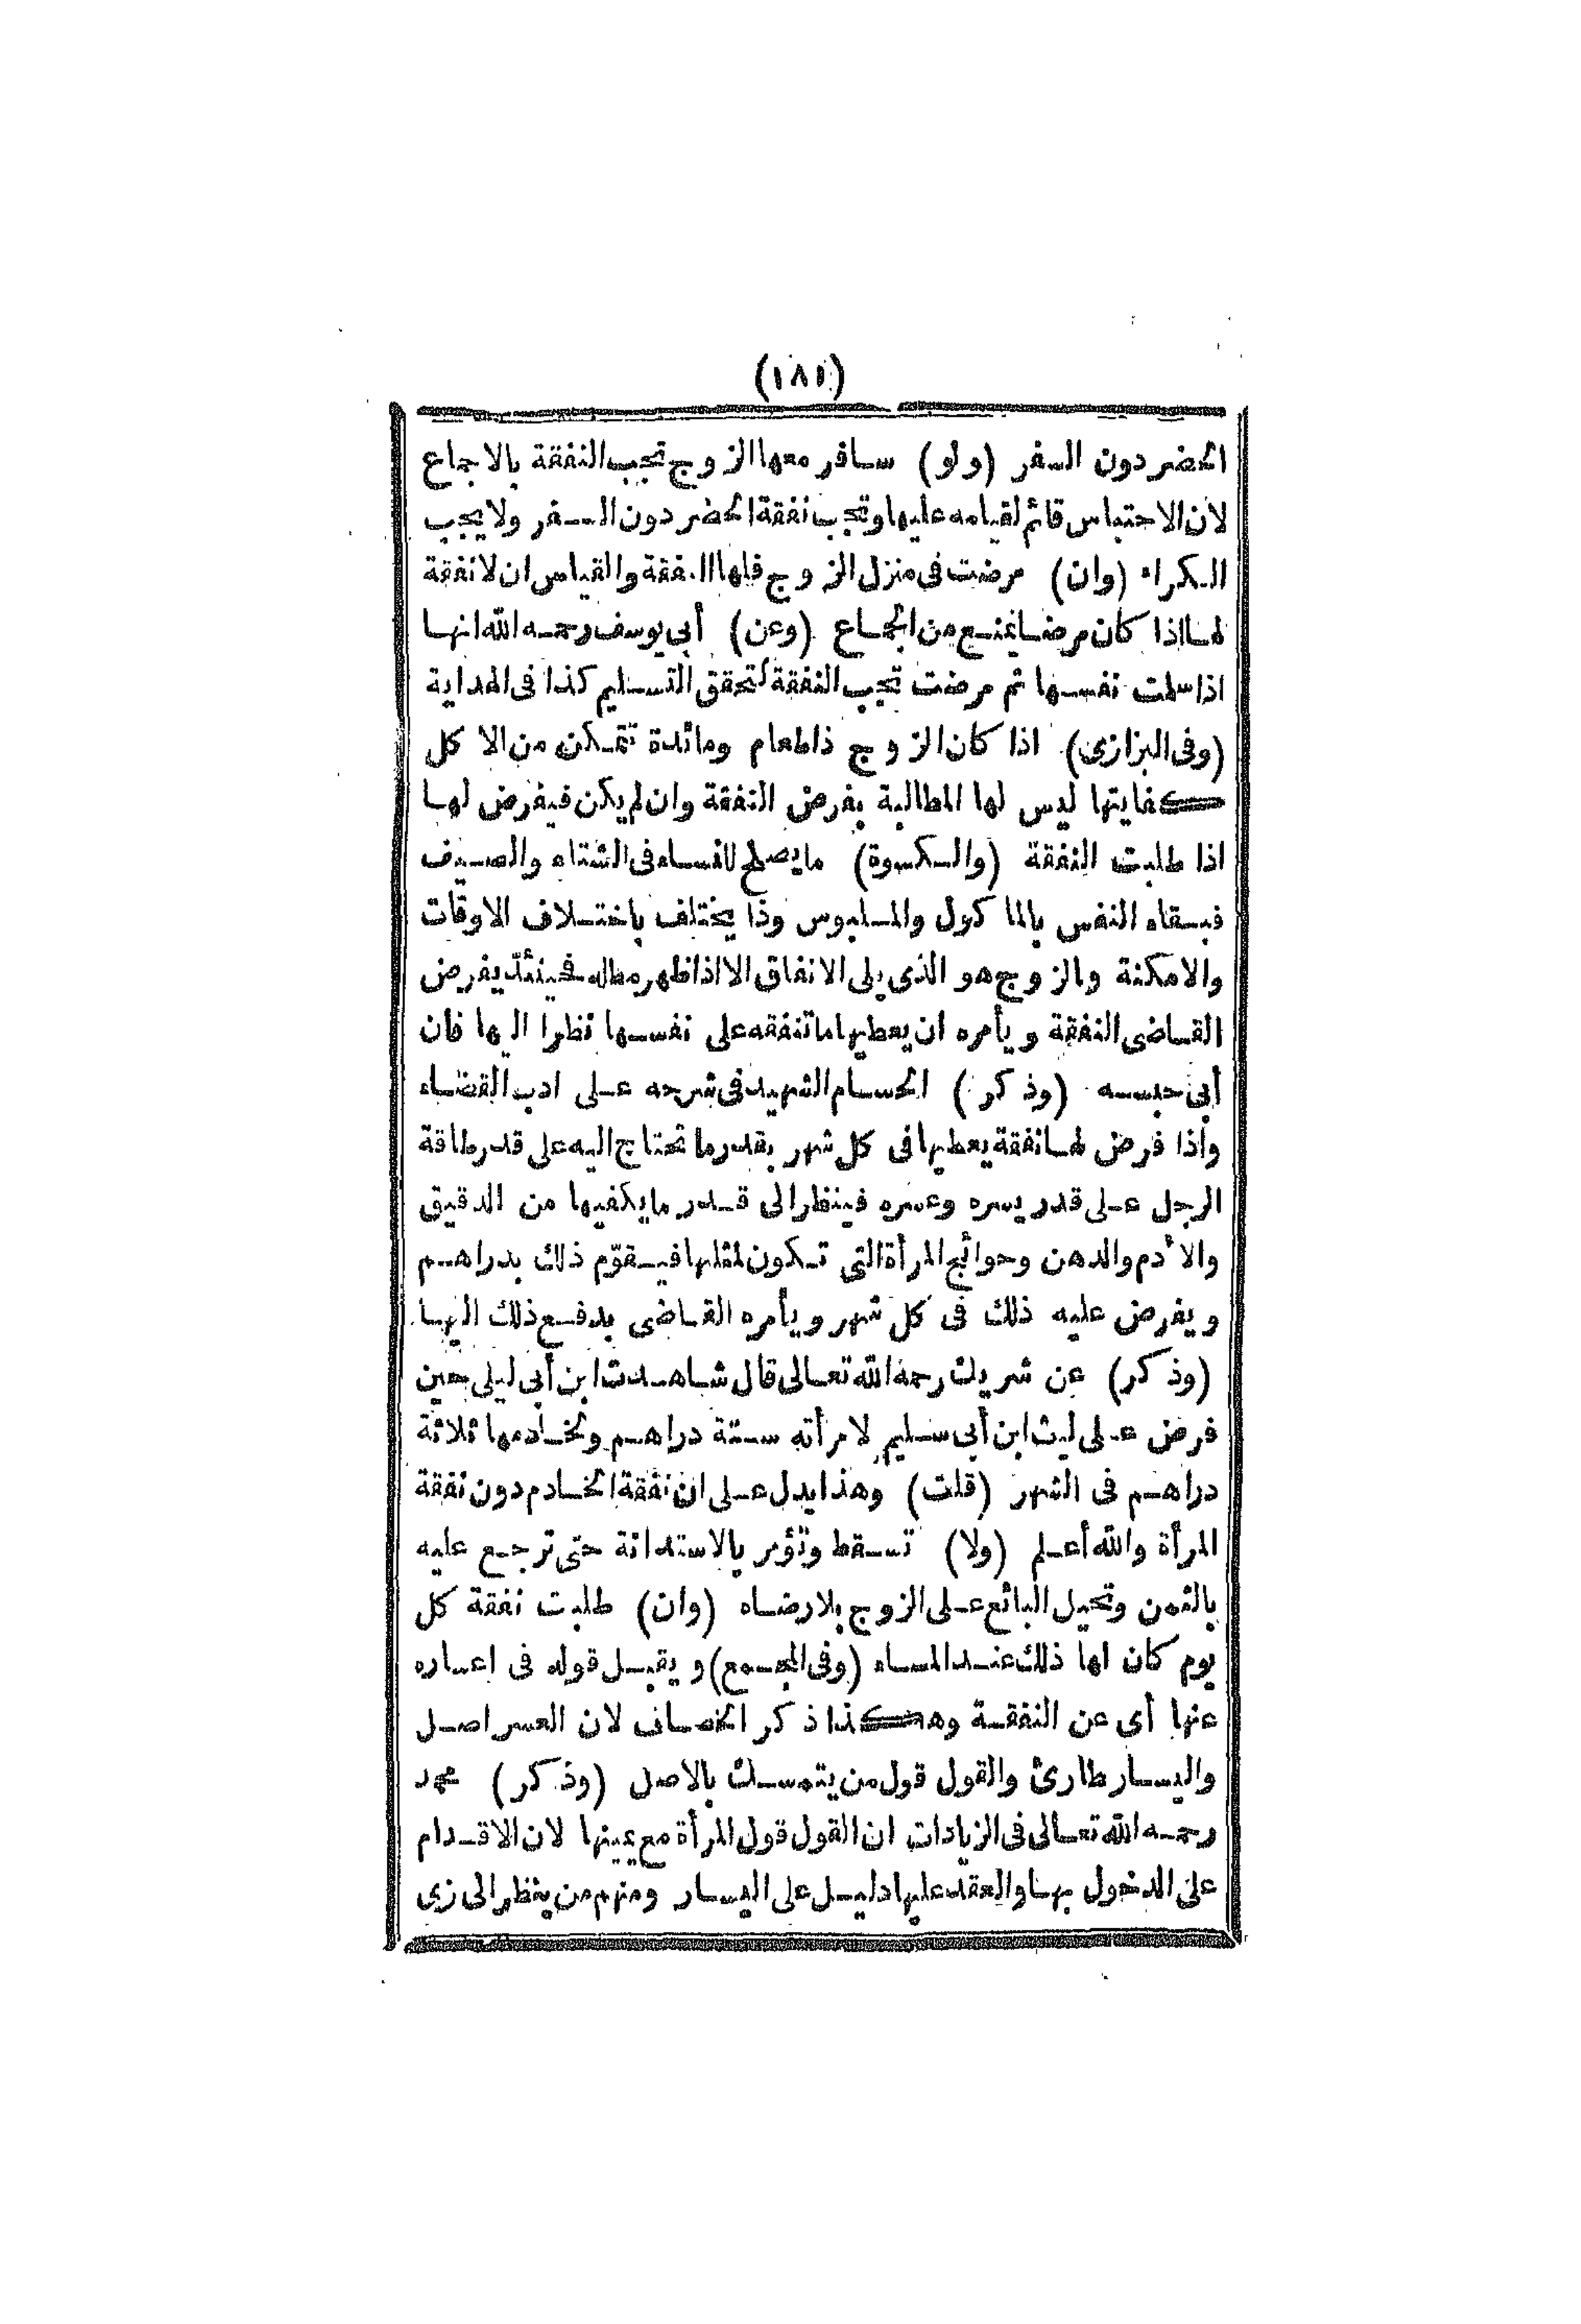 (١٨١)
الحضر دون السفر (ولو) سافر معها الزوج تجب النفقة بالاجماع
لان الاحتباس قائم لقيامه عليها وتجب نفقة الحضر دون السفر ولا يجب
الكراء (وان) مرضت فى منزل الزوج فلها النفقة والقياس ان لا نفقة
لها اذا كان مرضا يمنع من الجماع (وعن) أبى يوسف رحمه الله انها
اذا سلمت نفسها ثم مرضت تجب النفقة لتحقق التسليم كذا فى الهداية
(وفى البزازى) اذا كان الزوج ذا طعام ومائدة تتمكن من الاكل
كفايتها ليس لها المطالبة بفرض النفقة وان لم يكن فيفرض لها
اذا طلبت النفقة (والكسوة) ما يصلح للنساء فى الشتاء والصيف
فبقاء النفس بالمأكول والملبوس وذا يختلف باختلاف الاوقات
والامكنة والزوج هو الذى يلى الانفاق الا اذا ظهر مطله فحينئذ يفرض
القاضى النفقة ويأمره ان يعطيها ما تنفقه على نفسها نظرا اليها فان
أبى حبسه (وذكر) الحسام الشهيد فى شرحه على ادب القضاء
واذا فرض لها نفقة يعطيها فى كل شهر بقدر ما تحتاج اليه على قدر طاقة
الرجل على قدر يسره وعسره فينظر الى قدر ما يكفيها من الدقيق
والأدم والدهن وحوائج المرأة التى تكون لمثلها فيقوّم ذلك بدراهم
ويفرض عليه ذلك فى كل شهر ويأمره القاضى بدفع ذلك اليها
(وذكر) عن شريك رحمه الله تعالى قال شاهدت ابن أبى ليلى حين
فرض على ليث ابن أبى سليم لامرأته ستة دراهم ولخادمها ثلاثة
دراهم فى الشهر (قلت) وهذا يدل على ان نفقة الخادم دون نفقة
المرأة والله أعلم (ولا) تسقط وتؤمر بالاستدانة حتى ترجع عليه
بالثمن وتحيل البائع على الزوج بلا رضاه (وان) طلبت نفقة كل
يوم كان لها ذلك عند المساء (وفى المجمع) ويقبل قوله فى اعساره
عنها أى عن النفقة وهكذا ذكر الخصاف لان العسر اصل
واليسار طارئ والقول قول من يتمسك بالاصل (وذكر) محمد
رحمه الله تعالى فى الزيادات ان القول قول المرأة مع يمينها لان الاقدام
على الدخول بها والعقد عليها دليل على اليسار ومنهم من ينظر الى زى